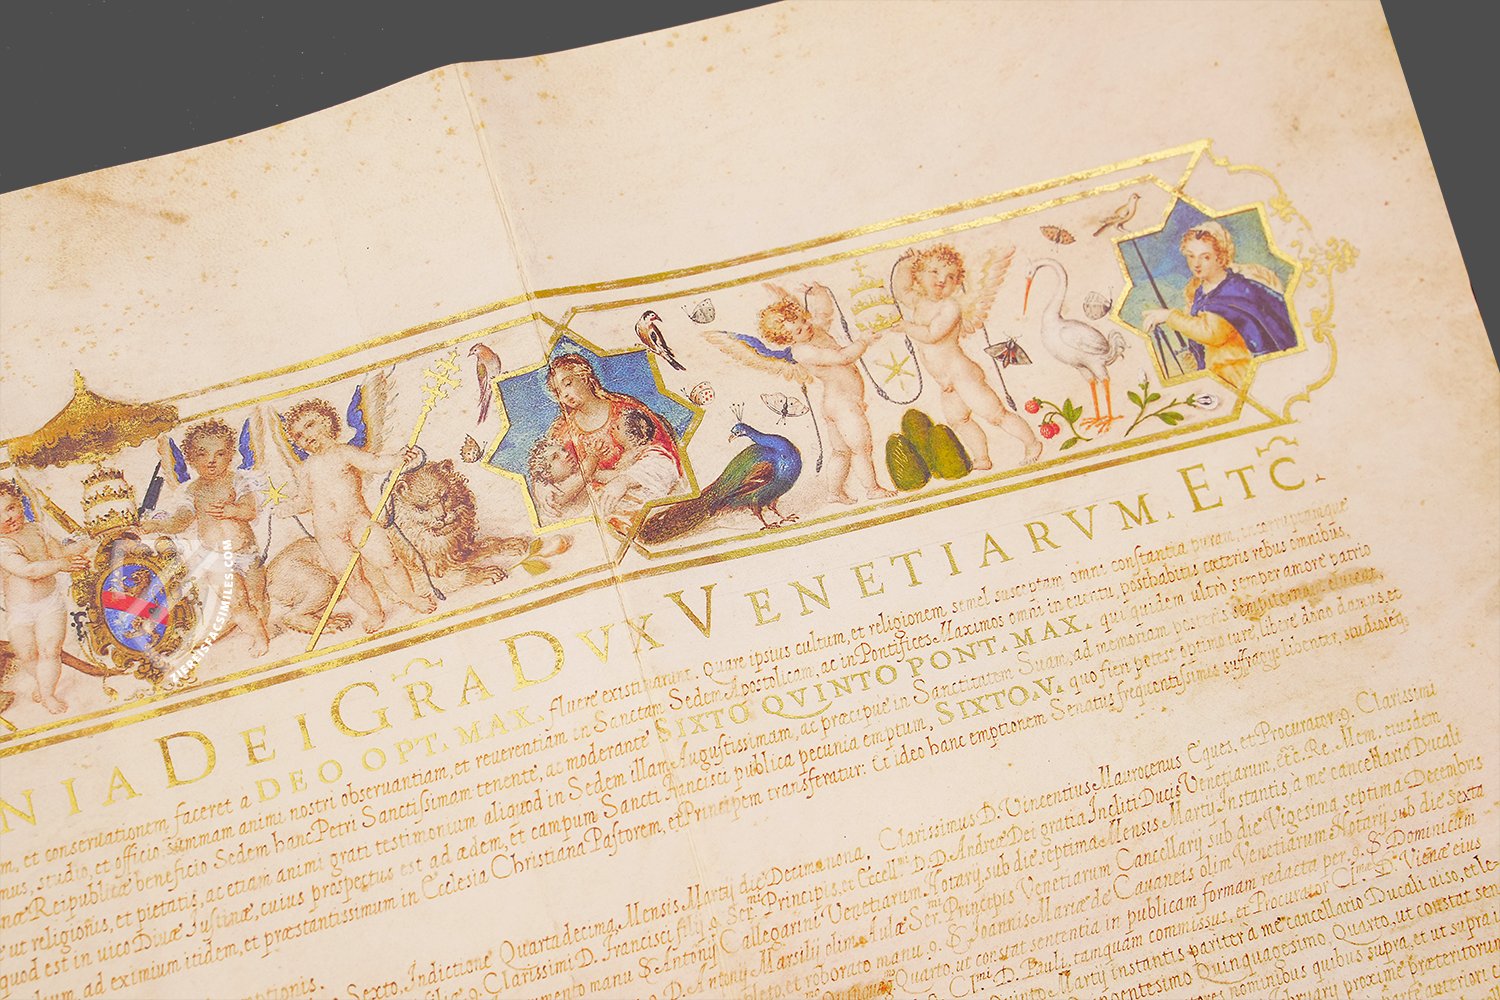 NIA DEI GRA DVX VENETIARVM. ETC.
m, et conseruationem faceret a DEO OPT. MAX. fluere existimarunt. Quare ipsius cultum, et religionem semel susceptam, omni constantia puram,
mus, studio, et officio, summam animi nostri obseruantiam, et reuerentiam in Sanctam Sedem Apostolicam, ac in Pontifices Maximos omni in euentu, posthabitis cæteris rebus omnibus,
næ Reipublicæ beneficio Sedem hanc Petri Sanctissimam tenente, ac moderante SIXTO QVINTO PONT. MAX. qui quidem ultrò semper amore patrio
ut religionis, et pietatis, ac etiam animi grati testimonium aliquod in Sedem illam Augustissimam, ac præcipue in Sanctitatem Suam, ad memoriam posteris sempiternam
quod est in uico Diuæ Iustinæ, cuius prospectus est ad ædem, et campum Sancti Francisci publica pecunia emptum, SIXTO.V. quo fieri potest optimo iure, libere dono damus, et
ad eximium itidem, et præstantissimum in Ecclesia Christiana Pastorem, et Principem transferatur: Et ideo hanc emptionem Senatus frequentissimus suffragijs libenter, studioseq.
emptionis.
Sexto, Indictione Quartadecima, Mensis Martij die Decimanona. Clarissimus D. Vincentius Maurocenus Eques, et Procurator. q. Clarissimi
Clarissimi D. Francisci filij q. Ser.mi Principis, et Eccell.mi D. D. Andreæ Dei gratia Incliti Ducis Venetiarum, Etc. Re. Mem. eiusdem
manu S Antonij Callegarini Venetiarum Notarij, sub die septima Mensis Martij Instantis, à me cancellario Ducali
D. Antonij Marsilij olim Aulæ Ser.mi Principis Venetiarum Cancellarij sub die Vigesima septima Decembris
et roborato manu q. S Joannis Mariæ de Cauaneis olim Venetiarum Notarij sub die Sexta
Quarto, ut constat sententia in publicam formam redacta per q. S Dominicum
D. Pauli, tamquam commissus, et Procurator C.mæ D. Vienæ eius
Quinto Martij instantis pariter à me cancellario Ducali uiso, et le-
Quinquagesimo, Quarto, ut constat
nominibus quibus supra, et ut supra
proxime præteritorum
VERISFACSIMILES.COM